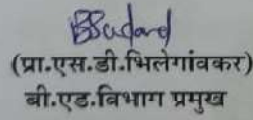 (प्रा.एस.डी.भिलेगांवकर)
बी.एड.विभाग प्रमुख